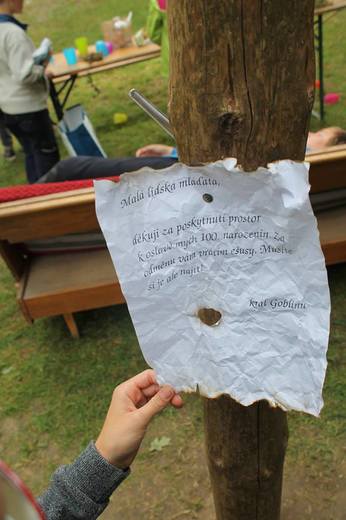 Malá lidská mláďata,
děkuji za poskytnutí prostor
k oslavě mých 100. narozenin. Za
odměnu vám vracím ešusy. Musíte
si je ale najít!
král Goblinů